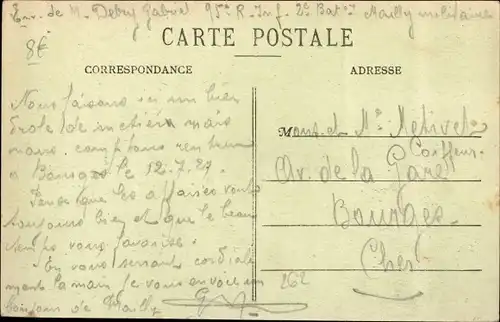 Env. de M. Debry Gabriel 95e R. Inf. 2e Bat. Mailly militaire
8€
CARTE POSTALE
CORRESPONDANCE
ADRESSE
Nous faisons ici un bien
drole de metier mais
nous comptons rentrer
a Bourges le 12.7.27.
Pense que les affaires vont
toujours bien et que le beau
temps vous favorise.
En vous serrant cordiale
ment la main je vous envoie un
bonjour de Mailly
M
ons et Me Metivet
Coiffeur
Av. de la Gare
Bourges
Cher
262